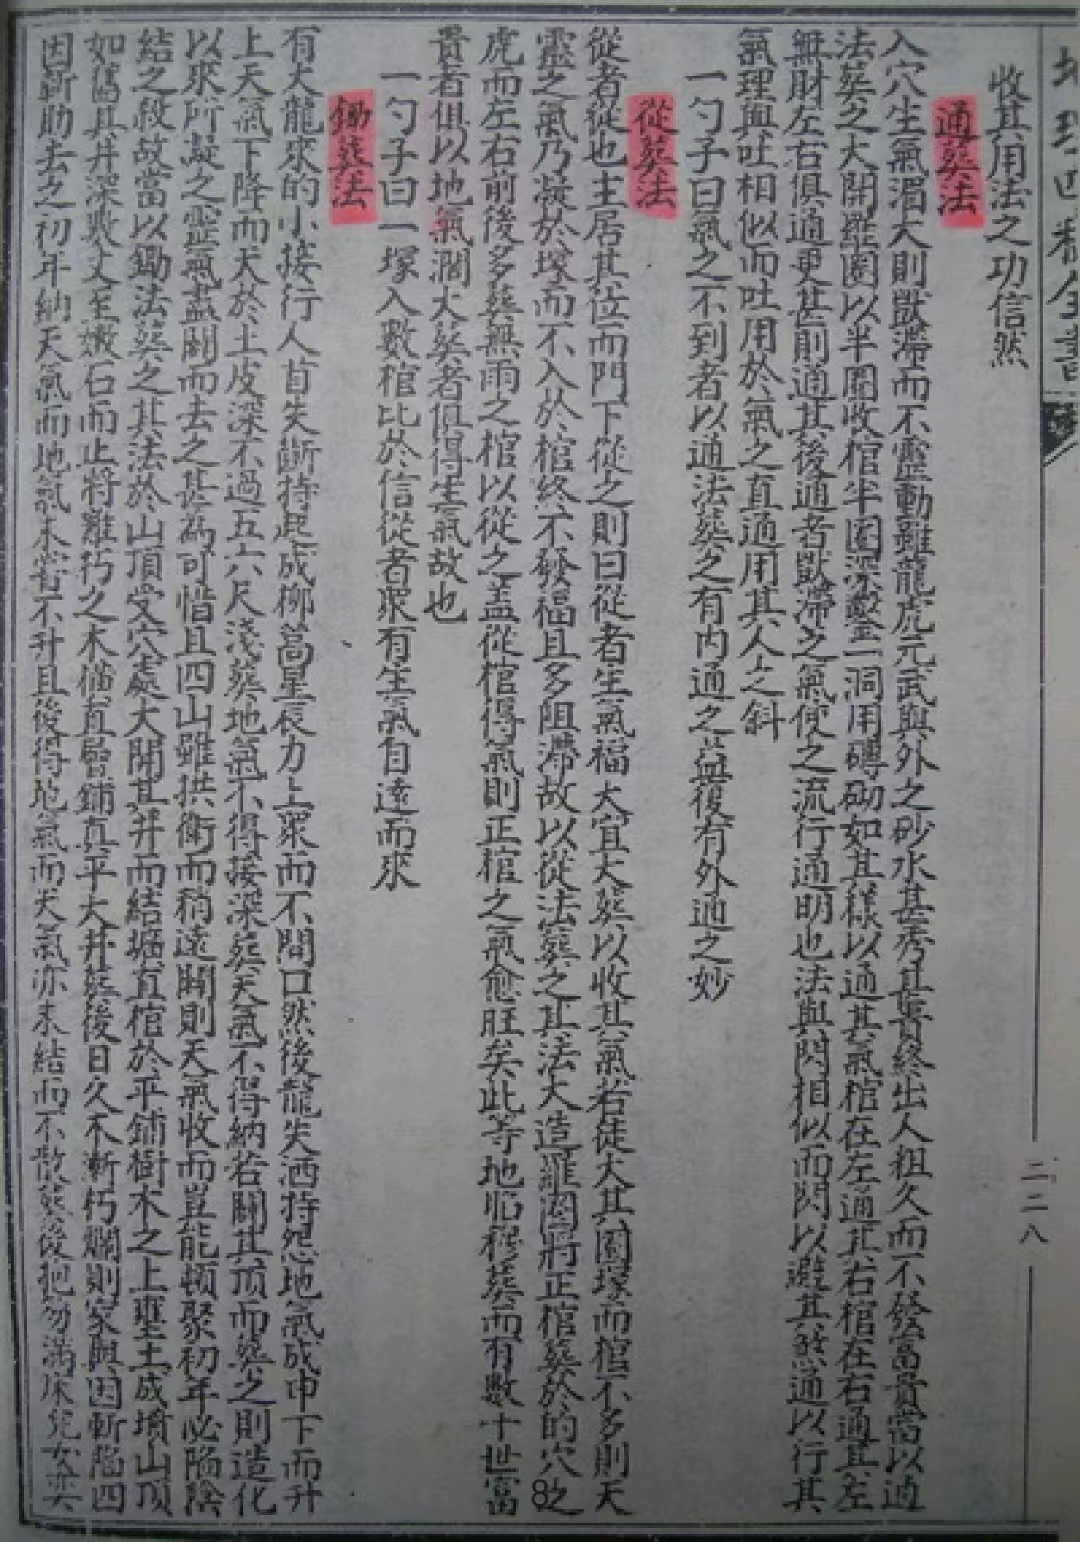 收其用法之功信然
通葬法
入穴生氣濶大則獃滯而不靈動雖龍虎元武與外之砂水甚秀且貴終出人粗久而不發富貴當以通
法葬之大開羅圍以半圍收棺半圍深鑿一洞用磚砌如其樣以通其氣棺在左通其右棺在右通其左
無財左右俱通更甚前通其後通者獃滯之氣使之流行通明也法與閃相似而閃以避其煞通以行其
氣理與吐相似而吐用於氣之直通用其人之斜
一勺子曰氣之不到者以通法葬之有內通之益復有外通之妙
從葬法
從者從也主居其位而門下從之則曰從者生氣福大宜大葬以收其氣若徒大其園塚而棺不多則天
靈之氣乃凝於塚而不入於棺終不發福且多阻滯故以從法葬之其法大造羅圍將正棺葬於的穴之
虎而左右前後多葬無雨之棺以從之蓋從棺得氣則正棺之氣愈旺矣此等地脈穆葬而有數十世富
貴者俱以地氣濶大葬者俱得生氣故也
一勺子曰一塚入數棺比於信從者眾有生氣自遠而來
鋤葬法
有大龍來的小接行人首失斷持起成柳蒿星辰力上眾而不開口然後龍失洒持起地氣成中下而升
上天氣下降而大於土皮深不過五六尺淺葬地氣不得接深葬天氣不得納若關其頂而葬之則造化
以來所凝之靈氣盡關而去之甚為可惜且四山雖拱衛而稍遠關則天氣收而豈能頓聚初年必陷陰
結之段故當以鋤法葬之其法於山頂受穴處大開其井而結壙直棺於平鋪樹木之上壅土成墳山頂
如舊其井深數丈至嫩石而止將難朽之木橫直層鋪真平大井葬後日久木漸朽爛則家與因漸陷四
因漸助去之初年納天氣而地氣未害不升且後得地氣而天氣亦未結而不散葬後把勿滿床兒
二二八
8